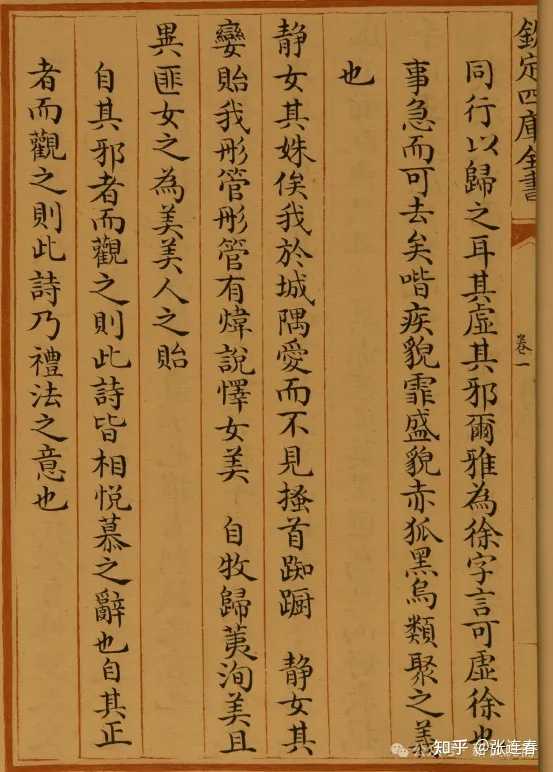 欽定四庫全書
卷一
同行以歸之耳其虛其邪爾雅為徐字言可虛徐也
事急而可去矣喈疾貌霏盛貌赤狐黑烏類聚之義
也
靜女其姝俟我於城隅愛而不見搔首踟蹰 靜女其
孌貽我彤管彤管有煒說懌女美 自牧歸荑洵美且
異匪女之為美美人之貽
自其邪者而觀之則此詩皆相悅慕之辭也自其正
者而觀之則此詩乃禮法之意也
知乎 @张连春